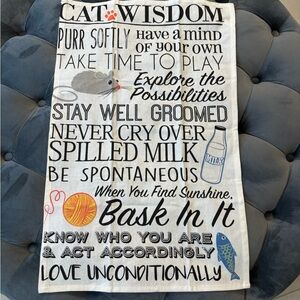 CAT WISDOM
PURR SOFTLY Have a mind
of your own
TAKE TIME TO PLAY
Explore the
Possibilities
STAY WELL GROOMED
NEVER CRY OVER
SPILLED MILK
MILK
BE SPONTANEOUS
When You Find Sunshine,
Bask In It
KNOW WHO YOU ARE
& ACT ACCORDINGLY
LOVE UNCONDITIONALLY